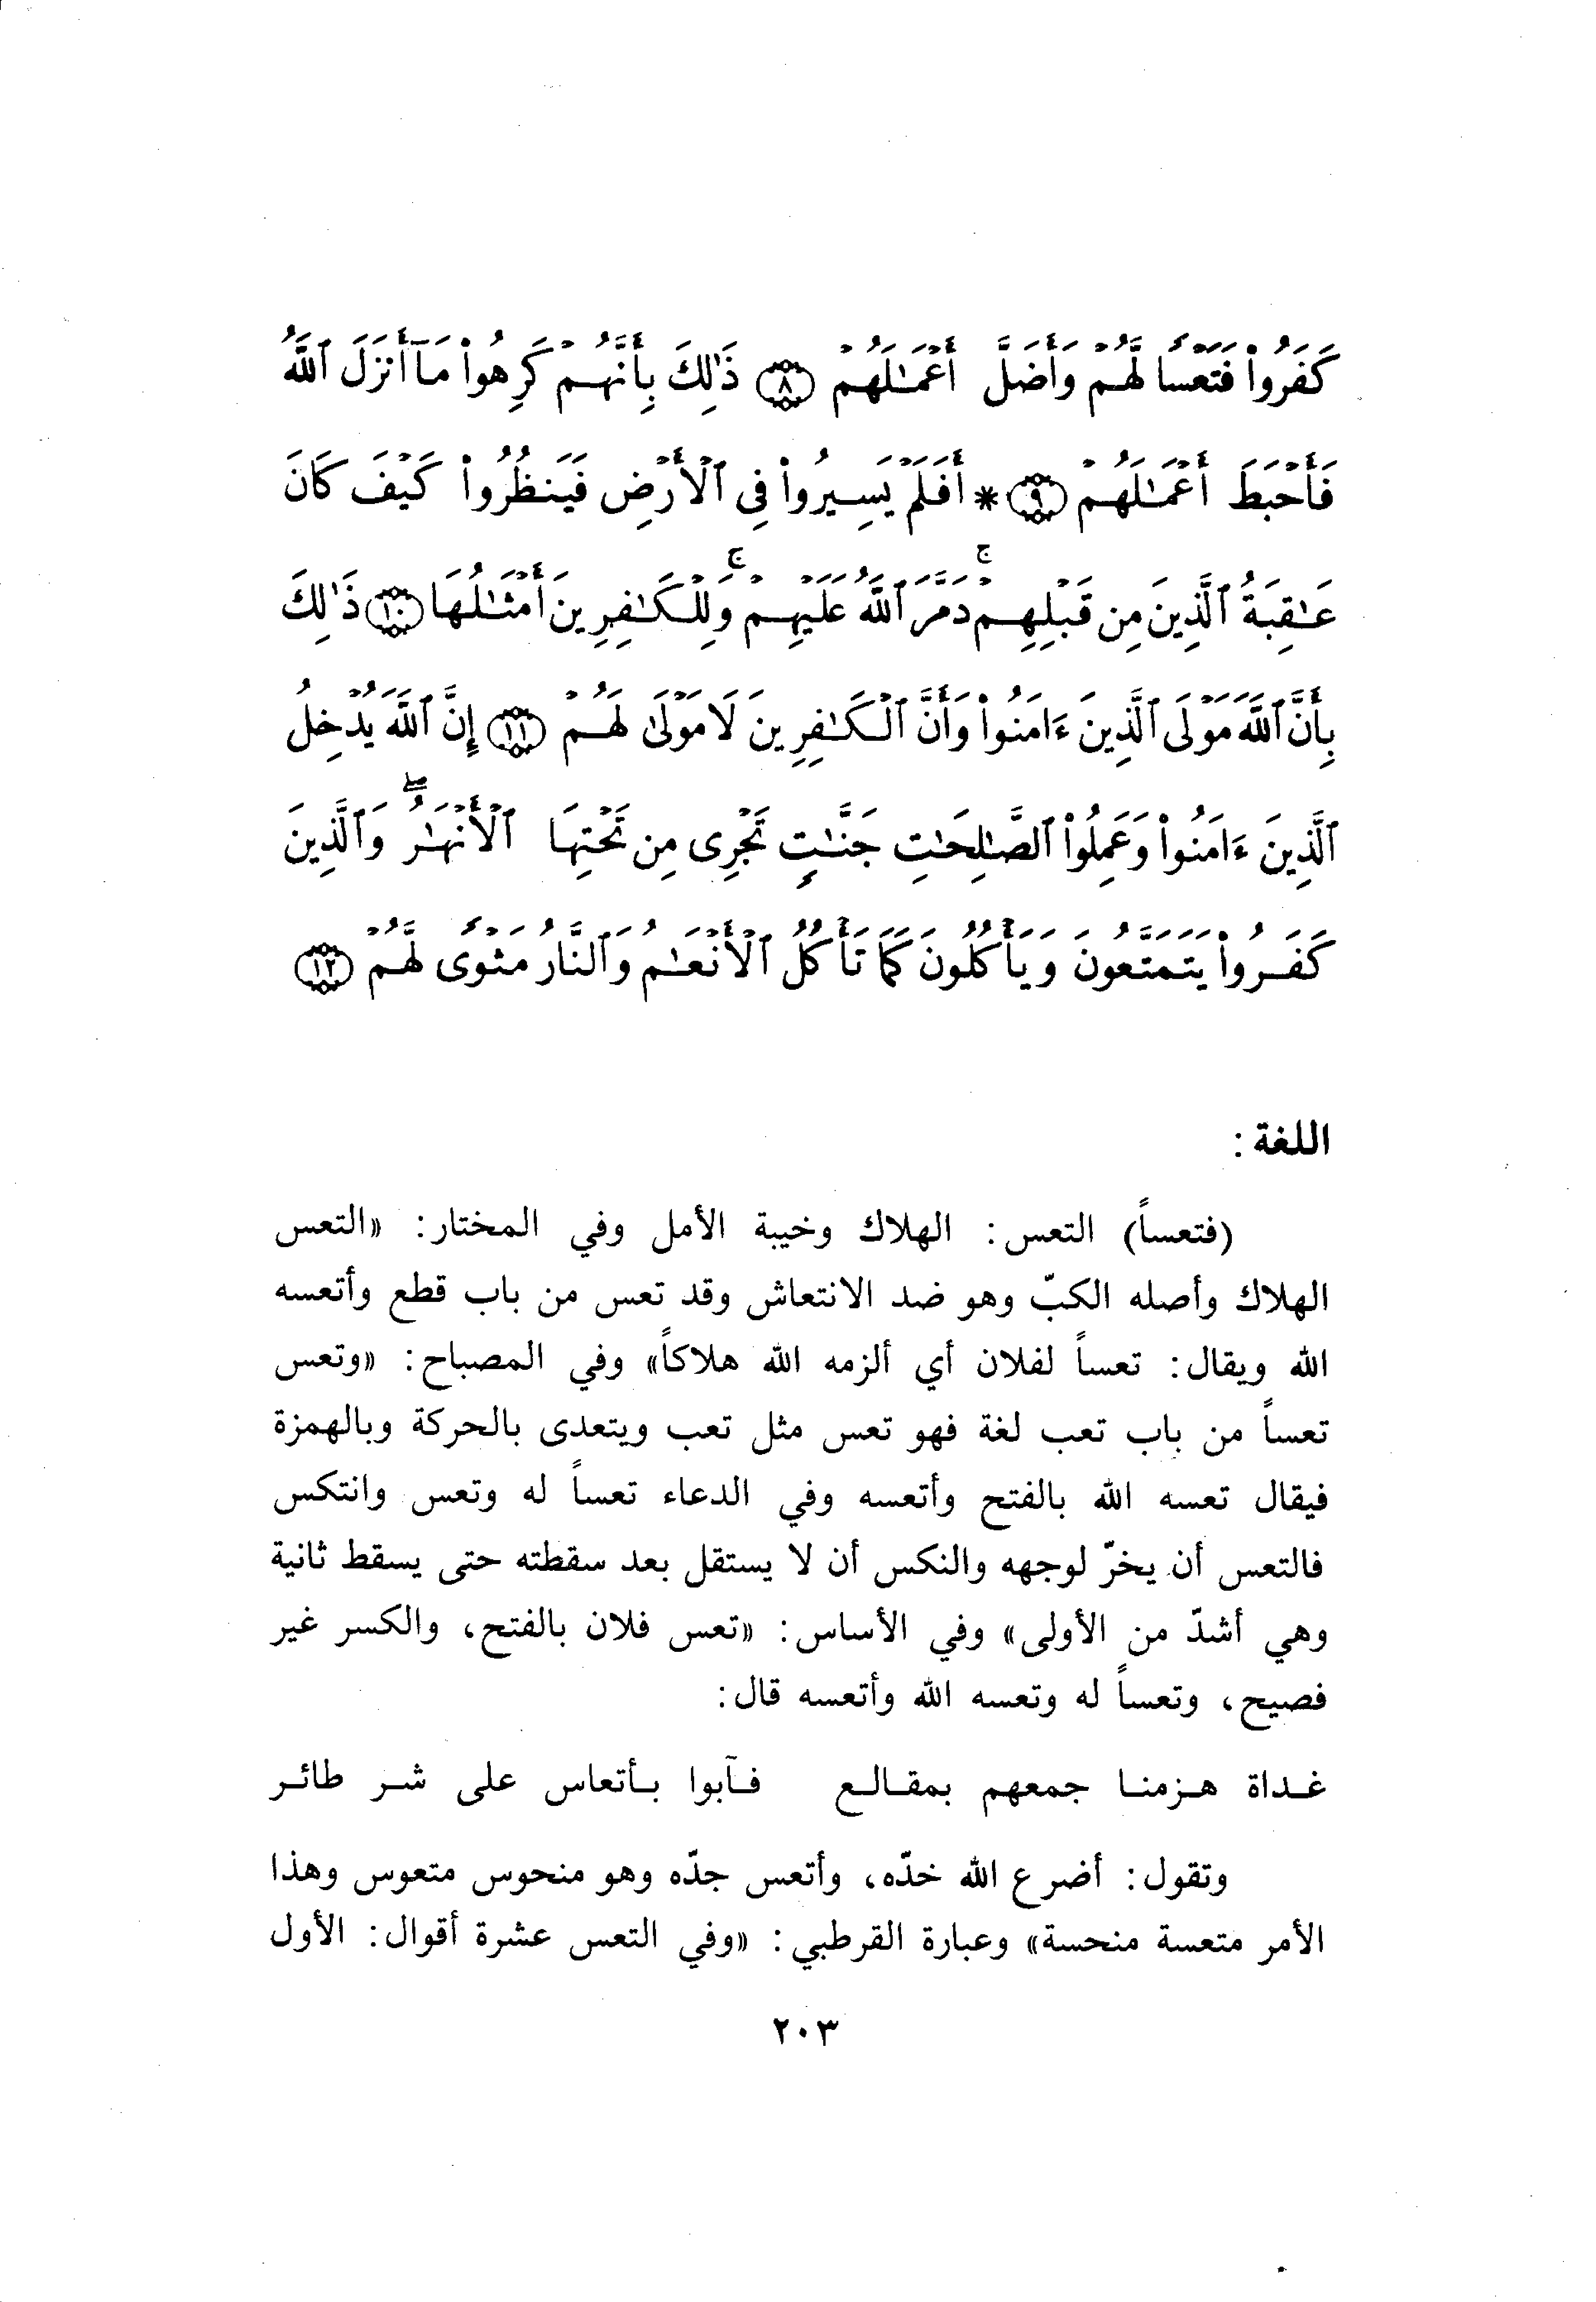 كَفَرُوا۟ فَتَعْسًا لَّهُمْ وَأَضَلَّ أَعْمَـٰلَهُمْ ﴿٨﴾ ذَٰلِكَ بِأَنَّهُمْ كَرِهُوا۟ مَآ أَنزَلَ ٱللَّهُ
فَأَحْبَطَ أَعْمَـٰلَهُمْ ﴿٩﴾ * أَفَلَمْ يَسِيرُوا۟ فِى ٱلْأَرْضِ فَيَنظُرُوا۟ كَيْفَ كَانَ
عَـٰقِبَةُ ٱلَّذِينَ مِن قَبْلِهِمْ ۚ دَمَّرَ ٱللَّهُ عَلَيْهِمْ ۚ وَلِلْكَـٰفِرِينَ أَمْثَـٰلُهَا ﴿١٠﴾ ذَٰلِكَ
بِأَنَّ ٱللَّهَ مَوْلَى ٱلَّذِينَ ءَامَنُوا۟ وَأَنَّ ٱلْكَـٰفِرِينَ لَا مَوْلَىٰ لَهُمْ ﴿١١﴾ إِنَّ ٱللَّهَ يُدْخِلُ
ٱلَّذِينَ ءَامَنُوا۟ وَعَمِلُوا۟ ٱلصَّـٰلِحَـٰتِ جَنَّـٰتٍ تَجْرِى مِن تَحْتِهَا ٱلْأَنْهَـٰرُ ۖ وَٱلَّذِينَ
كَفَرُوا۟ يَتَمَتَّعُونَ وَيَأْكُلُونَ كَمَا تَأْكُلُ ٱلْأَنْعَـٰمُ وَٱلنَّارُ مَثْوًى لَّهُمْ ﴿١٢﴾
اللغة :
(فتعساً) التعس: الهلاك وخيبة الأمل وفي المختار: «التعس
الهلاك وأصله الكبّ وهو ضد الانتعاش وقد تعس من باب قطع وأتعسه
الله ويقال: تعساً لفلان أي ألزمه الله هلاكاً» وفي المصباح: «وتعس
تعساً من باب تعب لغة فهو تعس مثل تعب ويتعدى بالحركة وبالهمزة
فيقال تعسه الله بالفتح وأتعسه وفي الدعاء تعساً له وتعس وانتكس
فالتعس أن يخرّ لوجهه والنكس أن لا يستقل بعد سقطته حتى يسقط ثانية
وهي أشدّ من الأولى» وفي الأساس: «تعس فلان بالفتح، والكسر غير
فصيح، وتعساً له وتعسه الله وأتعسه قال:
غداة هزمنا جمعهم بمقالع فآبوا بأتعاس على شر طائر
وتقول: أضرع الله خدّه، وأتعس جدّه وهو منحوس متعوس وهذا
الأمر متعسة منحسة» وعبارة القرطبي: «وفي التعس عشرة أقوال: الأول
٢٠٣